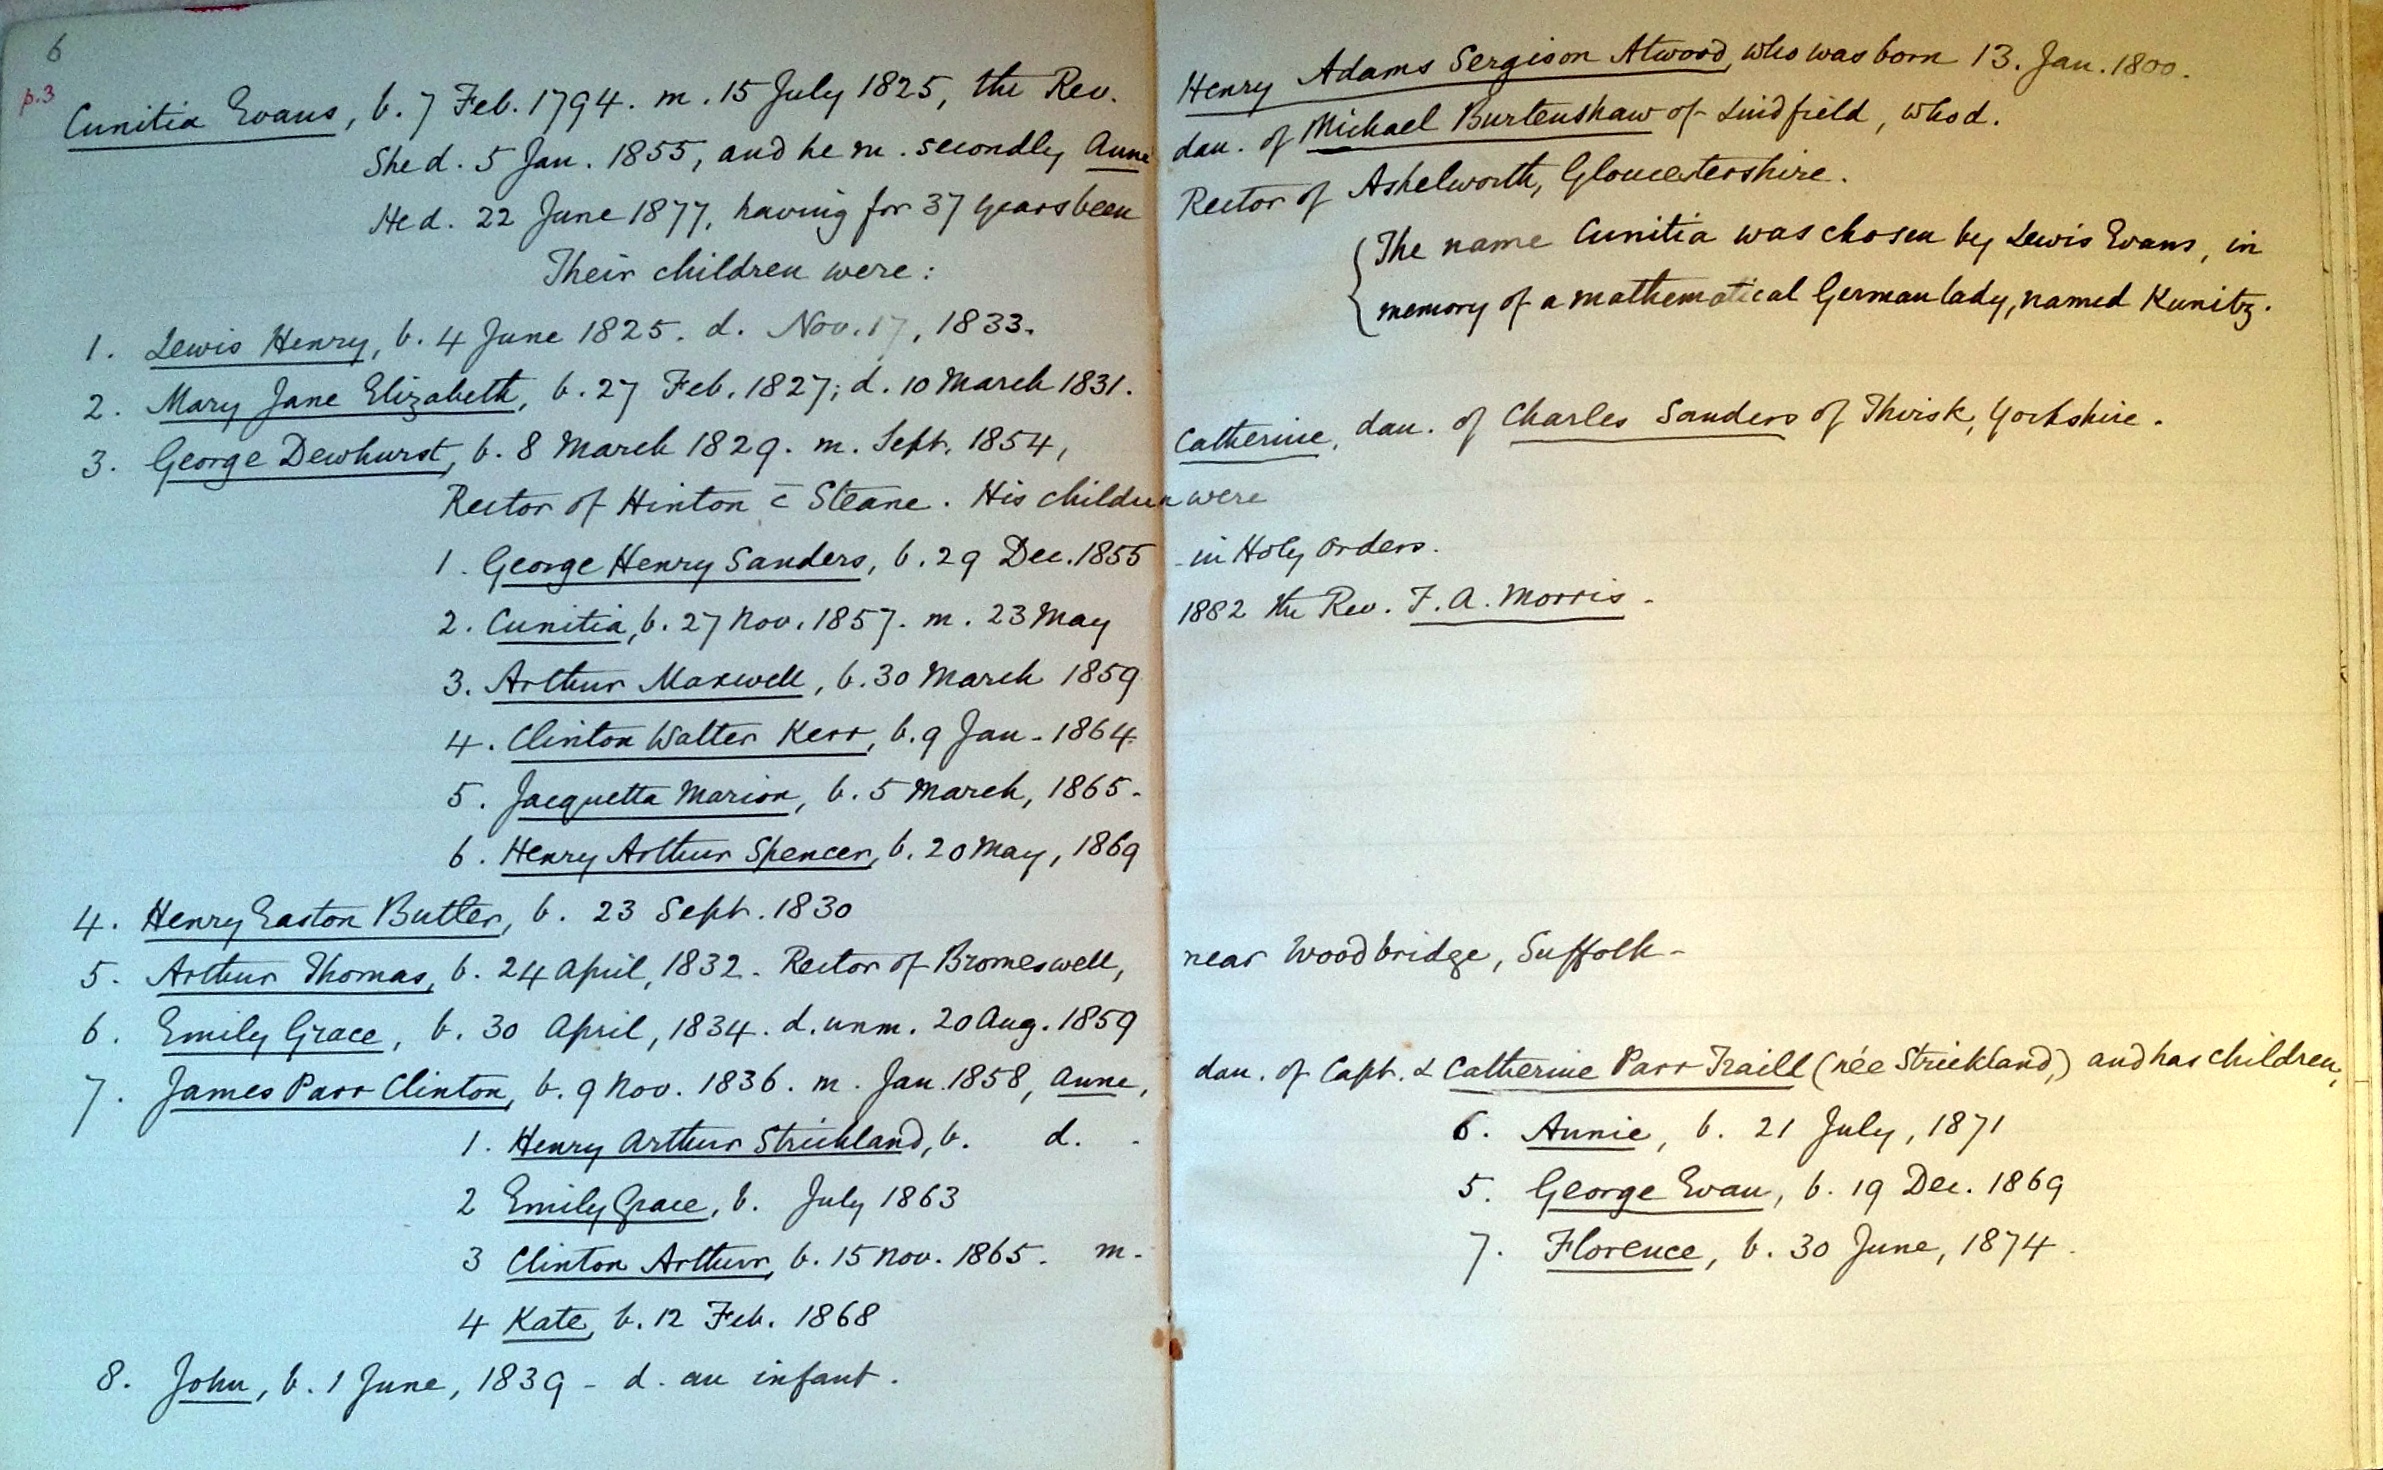 6
p.3
Cunitia Evans, b. 7 Feb. 1794. m. 15 July 1825, the Rev. Henry Adams Sergison Atwood, who was born 13. Jan. 1800.
She d. 5 Jan. 1855, and he m. secondly Anne dau. of Michael Burtenshaw of Lindfield, who d.
He d. 22 June 1877, having for 37 years been Rector of Ashelworth, Gloucestershire.
{The name Cunitia was chosen by Lewis Evans, in
memory of a mathematical German lady, named Kunitz.
Their children were:
1. Lewis Henry, b. 4 June 1825. d. Nov. 17, 1833.
2. Mary Jane Elizabeth, b. 27 Feb. 1827; d. 10 March 1831.
3. George Dewhurst, b. 8 March 1829. m. Sept. 1854, Catherine, dau. of Charles Sanders of Thirsk, Yorkshire.
Rector of Hinton c̄ Steane. His children were
1. George Henry Sanders, b. 29 Dec. 1855 - in Holy Orders.
2. Cunitia, b. 27 Nov. 1857. m. 23 May 1882 the Rev. F. A. Morris -
3. Arthur Maxwell, b. 30 March 1859
4. Clinton Walter Kerr, b. 9 Jan - 1864.
5. Jacquetta Marion, b. 5 March, 1865 -
6. Henry Arthur Spencer, b. 20 May, 1869
4. Henry Easton Butler, b. 23 Sept. 1830
5. Arthur Thomas, b. 24 April, 1832 - Rector of Bromeswell, near Woodbridge, Suffolk -
6. Emily Grace, b. 30 April, 1834. d. unm. 20 Aug. 1859
7. James Parr Clinton, b. 9 Nov. 1836. m. Jan. 1858, Anne, dau. of Capt. & Catherine Parr Traill (née Strickland,) and has children,
1. Henry Arthur Strickland, b. d. -
2 Emily Grace, b. July 1863
3 Clinton Arthur, b. 15 Nov. 1865. m -
4 Kate, b. 12 Feb. 1868
6. Annie, b. 21 July, 1871
5. George Evan, b. 19 Dec. 1869
7. Florence, b. 30 June, 1874.
8. John, b. 1 June, 1839 - d. an infant.